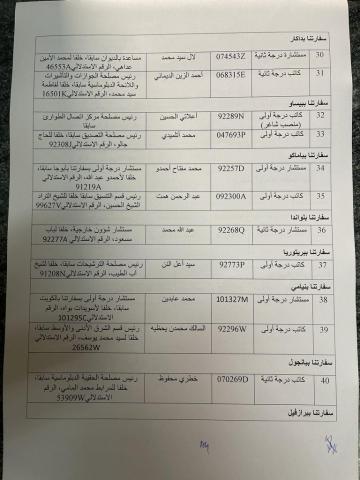 سفارتنا بداكار
30 مستشارة درجة ثانية 074543Z لال سيد محمد مساعدة بالديوان سابقا، خلفا لمحمد الأمين
عداهي، الرقم الاستدلالي 46553A
31 كاتب درجة ثانية 068315E أحمد الزين الديماني رئيس مصلحة الجوازات والتأشيرات
واللائحة الدبلوماسية سابقا، خلفا لفاطمة
سيد محمد، الرقم الاستدلالي 16501K
سفارتنا ببيساو
32 كاتب درجة أولى 92289N أعلاتي الحسين رئيس مصلحة مركز اتصال الطوارئ
(منصب شاغر) سابقا
33 كاتب درجة أولى 047693P محمد أنلميدي رئيس مصلحة التصديق سابقا، خلفا للحاج
جالو، الرقم الاستدلالي 92308J
سفارتنا بباماكو
34 مستشار درجة أولى 92257D محمد مفتاح أحمدو مستشار درجة أولى سفارتنا بأبوجا سابقا،
خلفا لأحمدو عبد الله، الرقم الاستدلالي
91219A
35 كاتب درجة أولى 092300A عبد الرحمن همت رئيس قسم التنسيق سابقا خلفا للشيخ التراد
الشيخ الحسين، الرقم الاستدلالي 99627V
سفارتنا بلواندا
36 مستشار درجة ثانية 92268Q عبد الله محمد مستشار شؤون خارجية، خلفا لباب
مسعود، الرقم الاستدلالي 92277A
سفارتنا ببريتوريا
37 كاتب درجة أولى 92773P سيد أعل النن رئيس مصلحة الترشيحات سابقا، خلفا لشيخ
آب الطيب، الرقم الاستدلالي 91208N
سفارتنا بنيامي
38 مستشار درجة أولى 101327M محمد عابدين مستشار درجة أولى بسفارتنا بالكويت
سابقا، خلفا لأسويدنات بواه، الرقم
الاستدلالي 101295C
39 كاتب درجة أولى 92296W السالك محمدن يحظيه رئيس قسم الشرق الأدنى والأوسط سابقا،
خلفا لسيد محمد يوسف، الرقم الاستدلالي
26562W
سفارتنا ببانجول
40 كاتب درجة ثانية 070269D خطري محفوظ رئيس مصلحة الحقيبة الدبلوماسية سابقا،
خلفا للمرابط محمد المامي، الرقم
الاستدلالي 53909W
سفارتنا ببرازفيل